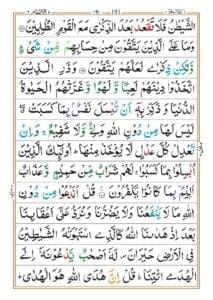 الشَّيْطٰنُ فَلَا تَقْعُدْ بَعْدَ الذِّكْرٰى مَعَ الْقَوْمِ الظّٰلِمِيْنَ
وَمَا عَلَى الَّذِيْنَ يَتَّقُوْنَ مِنْ حِسَابِهِمْ مِّنْ شَیْءٍ
وَّلٰكِنْ ذِكْرٰى لَعَلَّهُمْ يَتَّقُوْنَ وَذَرِ الَّذِيْنَ
اتَّخَذُوْا دِيْنَهُمْ لَعِبًا وَّلَهْوًا وَّغَرَّتْهُمُ الْحَيٰوةُ
الدُّنْيَا وَذَكِّرْ بِهٖٓ اَنْ تُبْسَلَ نَفْسٌۢ بِمَا كَسَبَتْ
لَيْسَ لَهَا مِنْ دُوْنِ اللّٰهِ وَلِيٌّ وَّلَا شَفِيْعٌ وَاِنْ
تَعْدِلْ كُلَّ عَدْلٍ لَّا يُؤْخَذْ مِنْهَا اُولٰٓئِكَ الَّذِيْنَ
اُبْسِلُوْا بِمَا كَسَبُوْا لَهُمْ شَرَابٌ مِّنْ حَمِيْمٍ وَّعَذَابٌ
اَلِيْمٌۢ بِمَا كَانُوْا يَكْفُرُوْنَ قُلْ اَنَدْعُوْا مِنْ دُوْنِ
اللّٰهِ مَا لَا يَنْفَعُنَا وَلَا يَضُرُّنَا وَنُرَدُّ عَلٰٓى اَعْقَابِنَا
بَعْدَ اِذْ هَدٰىنَا اللّٰهُ كَالَّذِى اسْتَهْوَتْهُ الشَّيٰطِيْنُ
فِى الْاَرْضِ حَيْرَانَ لَهٗٓ اَصْحٰبٌ يَّدْعُوْنَهٗٓ اِلَى
الْهُدَى ائْتِنَا قُلْ اِنَّ هُدَى اللّٰهِ هُوَ الْهُدٰى